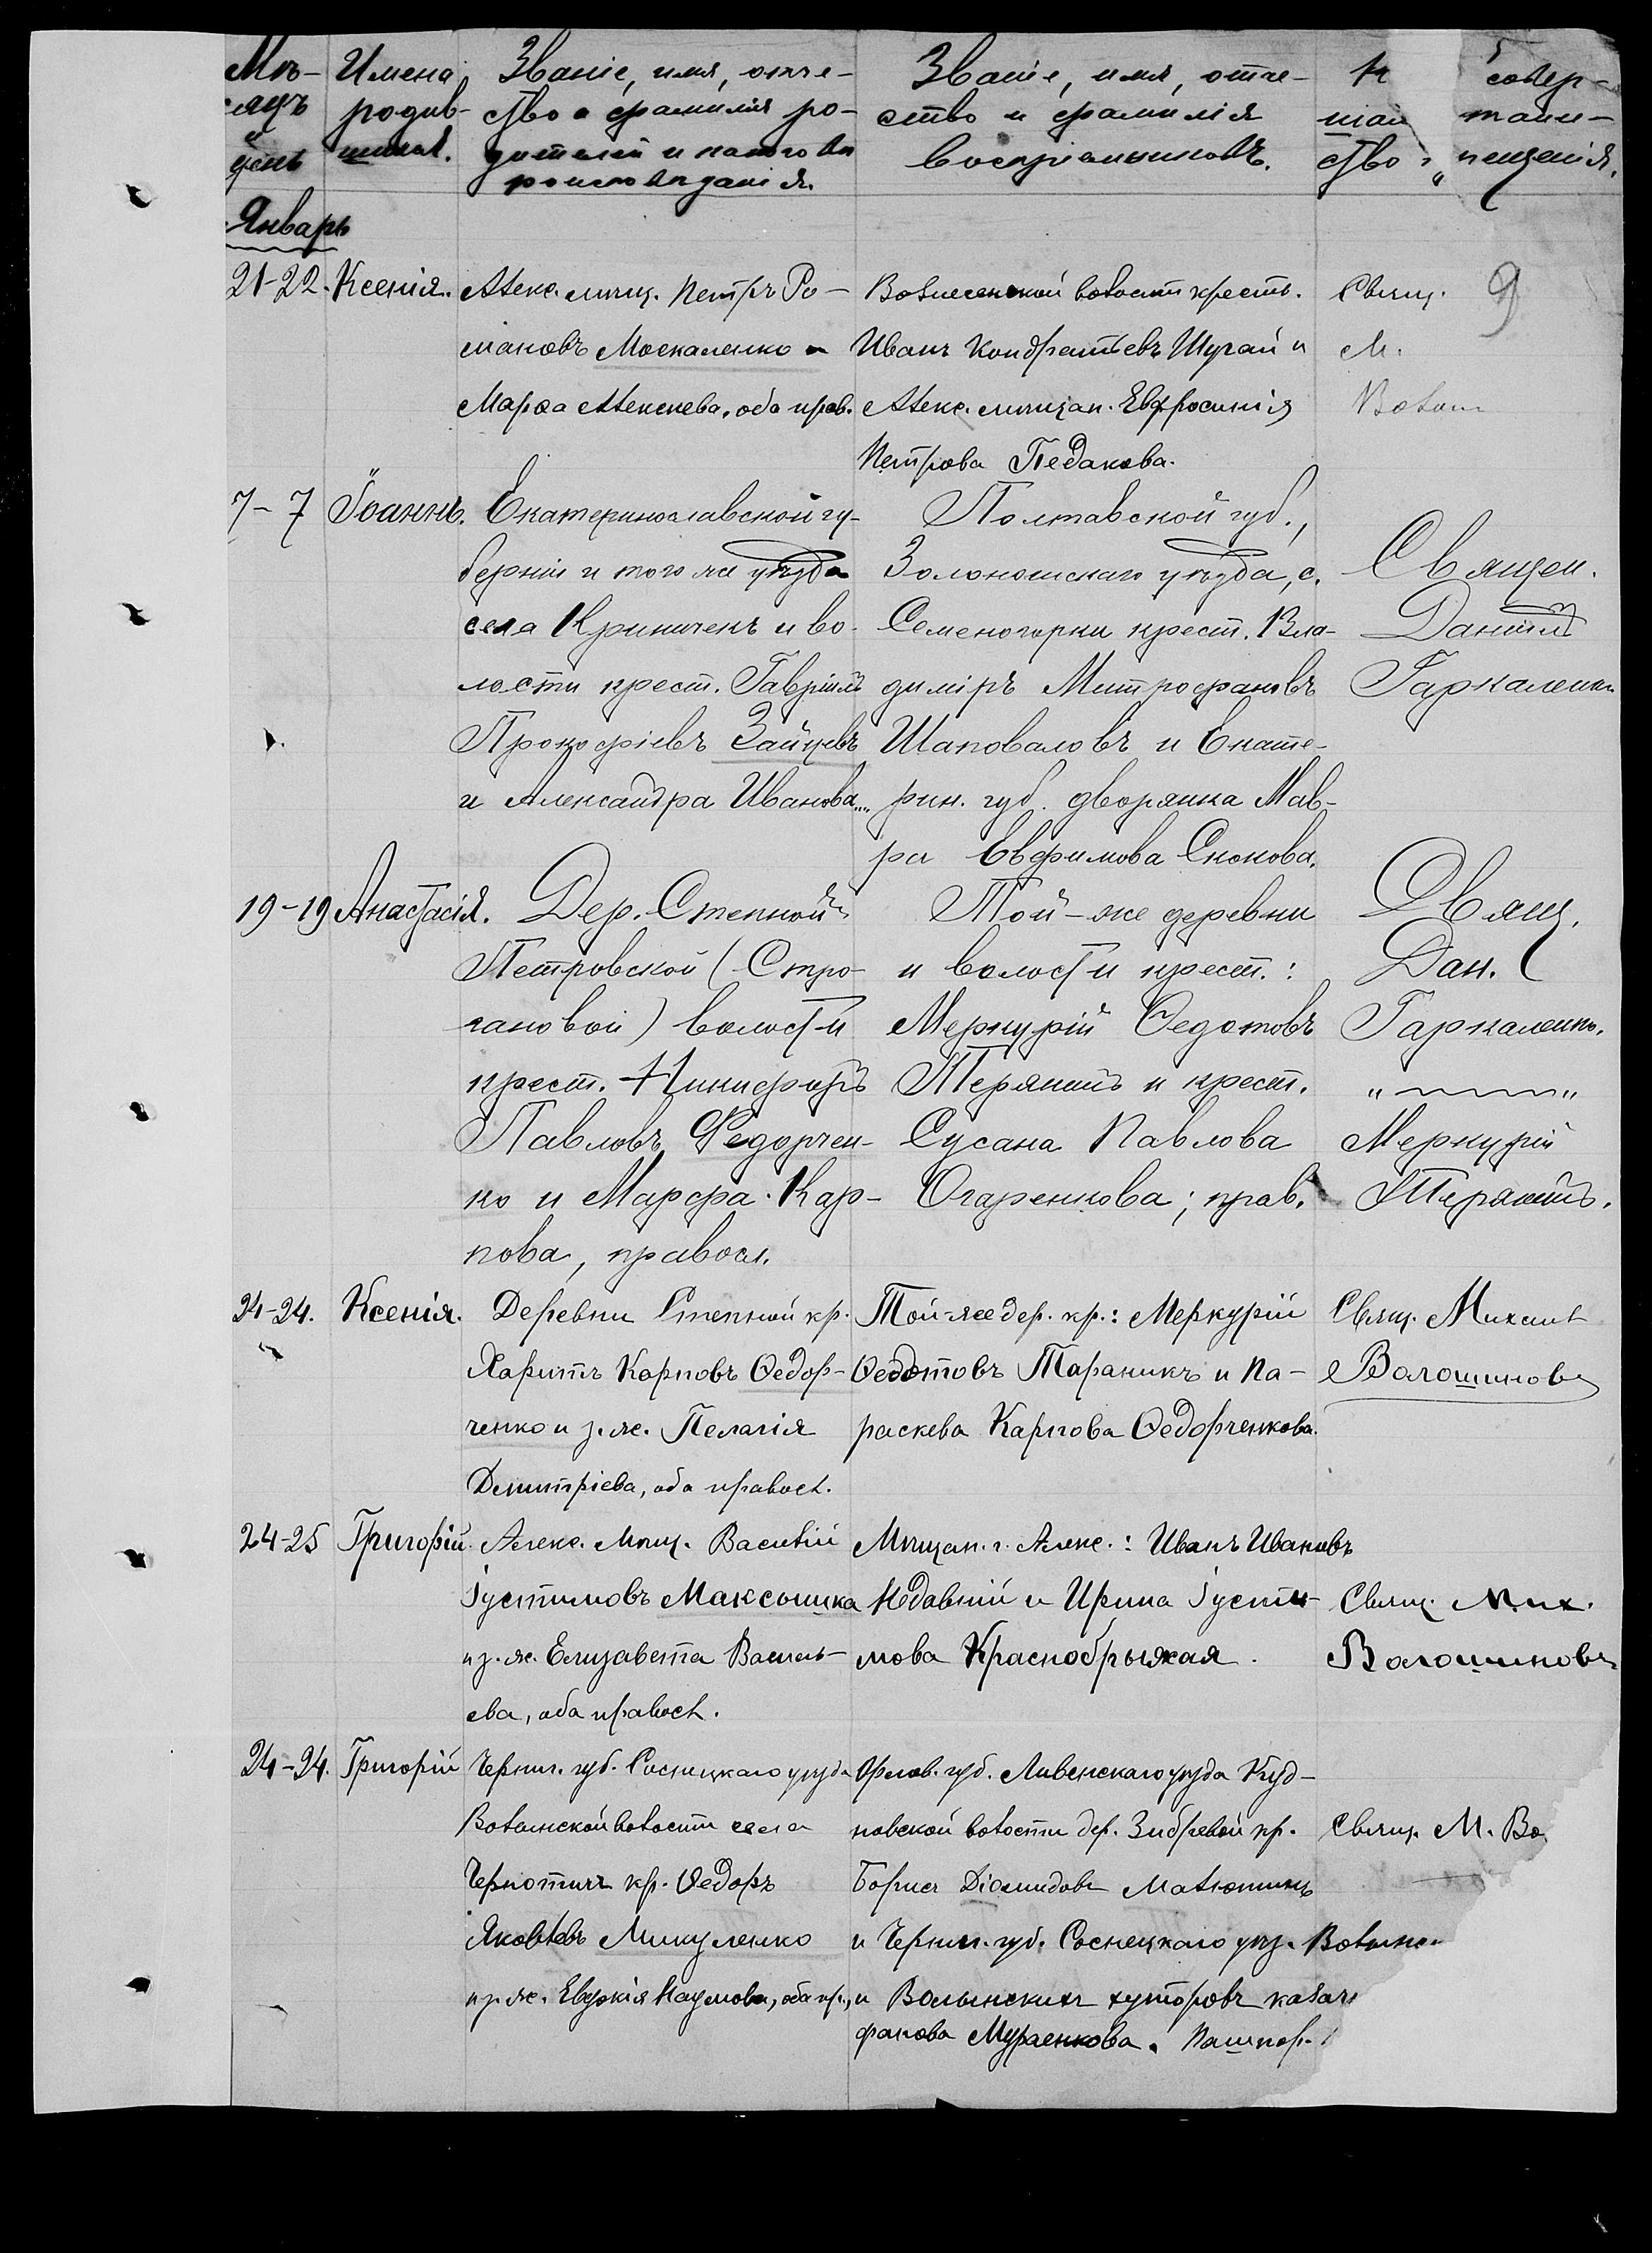 Мѣ-
сяцъ
и
день
Имена
родив-
шихся.
Званіе, имя, отче-
ство и фамилія ро-
дителей и какого вѣ
роисповѣданія.
Званіе, имя, отче-
ство и фамилія
воспріемниковъ.
К совер-
шал таин-
ство крещенія.
9
Январь
21-22. Ксенія.
Алекс. мѣщ. Петръ Ро-
мановъ Москаленко и
Марѳа Алексѣева, оба прав.
Вознесенской волости крестъ.
Иванъ Кондратьевъ Шугай и
Алекс. мѣщан. Евфросинія
Петрова Педакова.
Свящ.
М.
Волош
7-7 Іоаннъ.
Екатеринославской гу-
берніи и того же уѣзда
села Криничекъ и во-
лости крест. Гавріилъ
Прокофіевъ Зайцевъ
и Александра Иванова....
Полтавской губ.,
Золоношскаго уѣзда, с.
Семеногорки крест. Вла-
диміръ Митрофановъ
Шаповаловъ и Екате-
рин. губ. дворянка Мав-
ра Евфимова Скокова.
Священ.
Даніилъ
Гаркаленко
19-19 Анастасія.
Дер. Степной
Петровской (Стро-
гановой) волости
крест. Никифоръ
Павловъ Федорчен-
ко и Марфа Кар-
пова, правосл.
Той-же деревни
и волости крест.:
Меркурій Ѳедотовъ
Теряникъ и крест.
Сусана Павлова
Огаренкова; прав.
Свящ.
Дан.
Гаркаленко.
" "
Меркурій
Теряникъ.
24-24. Ксенія.
Деревни Степной кр.
Харитъ Карповъ Ѳедор-
ченко и з. ж. Пелагія
Димитріева, оба правосл.
Той-же дер. кр.: Меркурій
Ѳедотовъ Тараникъ и Па-
раскева Карпова Ѳедорченкова.
Свящ. Михаил
Волошиновъ
24-25 Григорій.
Алекс. Мѣщ. Василій
Іустиновъ Максюшка
и з. ж. Елизавета Василь-
ева, оба правосл.
Мѣщан. г. Алекс.: Иванъ Ивановъ
Недавній и Ирина Іусти-
нова Краснобрыжая.
Свящ. Мих.
Волошиновъ
24-24. Григорій
Черниг. губ. Сосницкаго уѣзда
Волынской волости села
Чернотичъ кр. Ѳедоръ
Яковлевъ Микуленко
и з. ж. Евдокія Наумова, оба пр.,
Орлов. губ. Ливенскаго уѣзда Куд-
новской волости дер. Зибревой кр.
Борисъ Діомидовъ Малютинъ
и Черниг. губ. Соснецкаго уѣз. Волынс
и Волынскихъ хуторовъ казач
фанова Мураенкова. Пашпор.
Свящ. М. Во